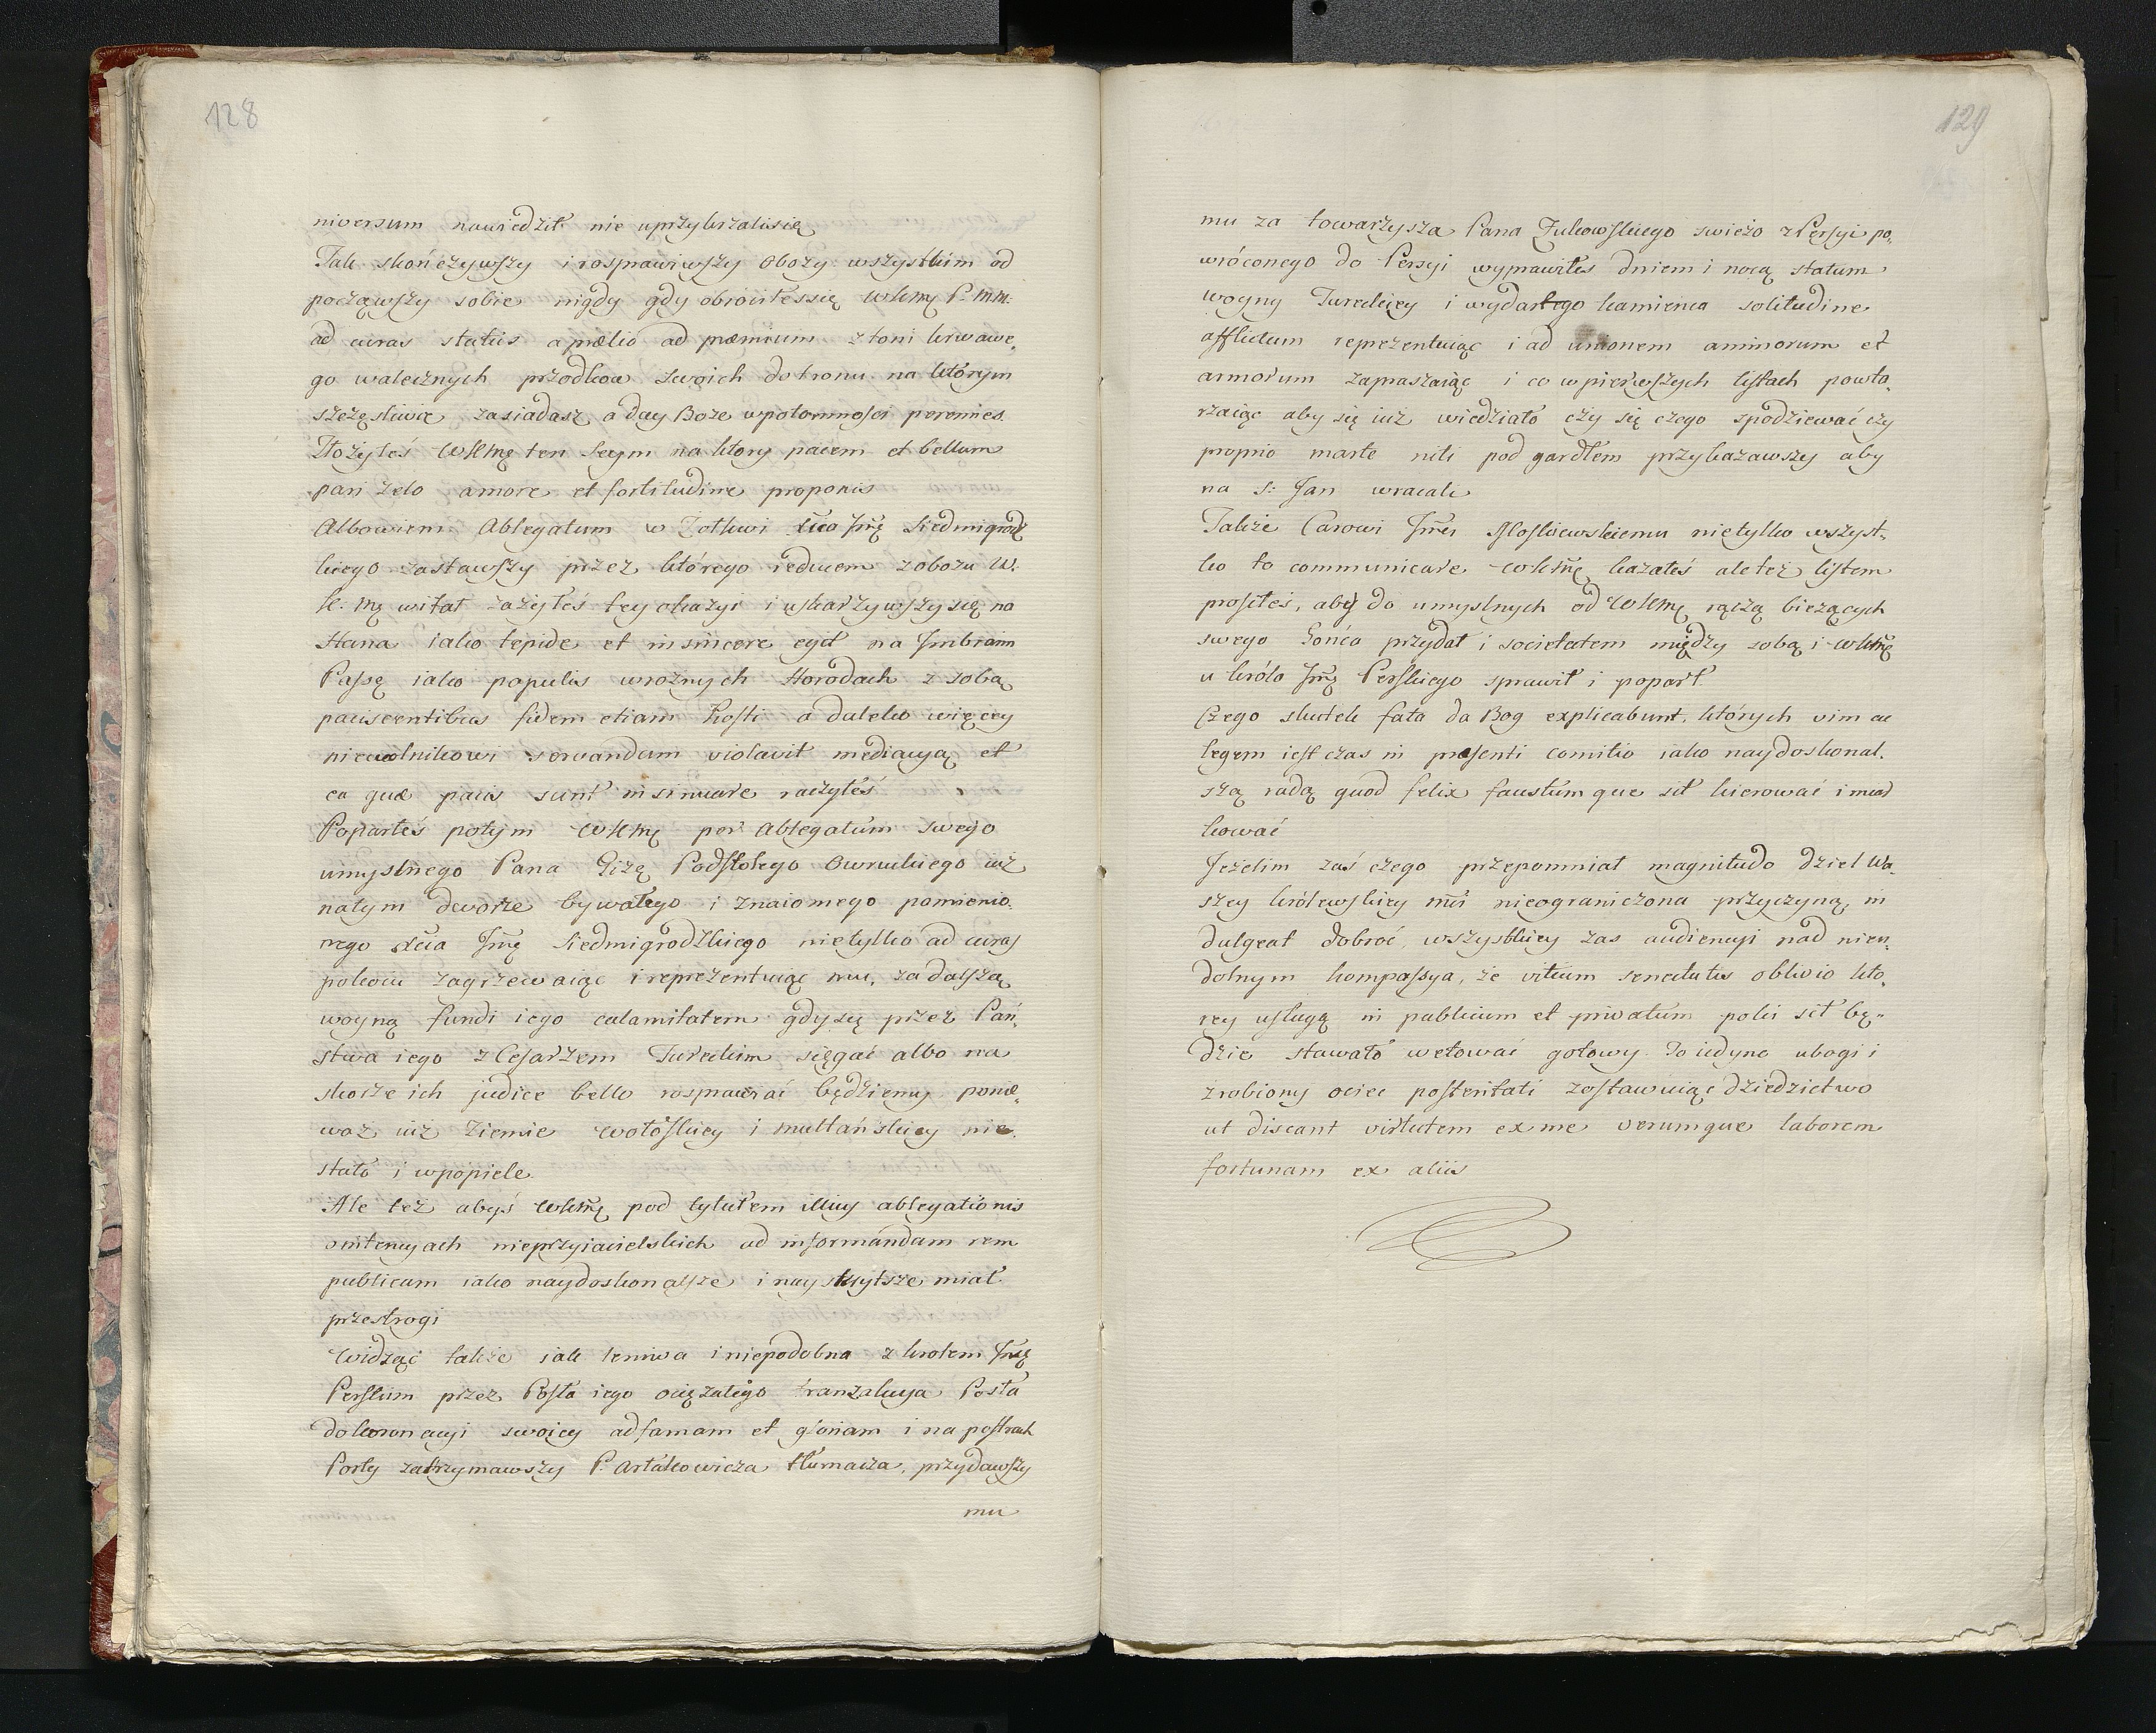 128
niversum nawiedził nie uprzykrzalisię
Tak skończywszy i rosprawiwszy obozy wszystkim od
począwszy sobie nigdy gdy obrociłessię WKMę P. mm.
ad curas status a prælio ad præmium z toni krwawe,
go walecznych przodkow swoich do tronu na którym
szczęsliwie zasiadasz a day Boze w potomnosci perennes
Złożyłeś WKMę ten Seym na ktory pacem et bellum
pari zelo amore et fortitudine proponis
Albowiem Ablegatum w Zołkwi Xcia Jmę Siedmigrodz
kiego zastawszy przez którego reducem z obozu W.
K. Mę witał zażyłeś tey okazyi i uskarzywszy się na
Hana iako tepide et insincere egit na Jmbraim
Paszę iako populis w roznych Horodach z sobą
paciscentibus fidem etiam hosti a daleko więcey
niewolnikowi servandam violavit mediacyą et
ea quæ pacis sunt insinuare raczyłeś
Poparłeś potym WKMę per Ablegatum swego
umyslnego Pana Gizę Podstolego Owruckiego iuż
natym dworze bywałego i znaiomego pomienio,
nego Xcia Jmę Siedmigrodzkiego nietylko ad curas
pokoiu zagrzewaiąc i reprezentuiąc mu, za dalszą
woyną fundi iego calamitatem gdysię przez Pań,
stwa iego z Cesarzem Tureckim sięgać albo na
skorze ich judice bello rosprawiać będziemy ponie,
waż iuż Ziemie Wołoskiey i multańskiey nie
stało i w popiele
Ale też abyś WKMę pod tytułem illius ablegationis
o intencyach nieprzyiacielskich ad informandam rem
publicam iako naydoskonalsze i nayskrytsze miał
przestrogi
Widząc także iak leniwa i niepodobna z krolem Jmę
Perskim przez Posła iego ociężałego tranzakcya Posła
do koronacyi swoiey ad famam et gloriam i na postrach
Porty zatrzymawszy P. Artakowicza tłumacza, przydawszy
mu
129
mu za towarzysza Pana Zukowskiego swieżo z Persyi po,
wróconego do Persyi wyprawiłes dniem i nocą statum
woyny Tureckiey i wydartego kamienca solitudine
afflictum reprezentuiąc i ad unionem animorum et
armorum zapraszaiąc i co w pierwszych listach powta,
rzaiąc aby się iuż wiedziało czy się czego spodziewać czy
proprio marte niti pod gardłem przykazawszy aby
na S: Jan wracali
Także Carowi Jmci Moskiewskiemu nietylko wszyst,
ko to communicare WKMę kazałeś ale też listem
prosiłeś, aby do umyslnych od WKMę rączą bieżących
swego Gońca przydał i societatem między sobą i WKMę
u króla Jmę Perskiego sprawił i poparł
Czego skutek fata da Bog explicabunt, których vim ac
legem iest czas in præsenti comitio iako naydoskonal,
szą radą quod felix faustumque sit kierować i miar
kować
Jeżelim zaś czego przepomniał magnitudo dzieł Wa,
szey królewskiey mci nieograniczona przyczyną, in
dulgeat dobroć, wszystkiey zas audiencyi nad nieu,
dolnym kompassya, że vitium senectutis oblivio kto,
rey usługą in publicum et privatum poki sił bę,,
dzie stawało wetować gotowy. To iedyno ubogi i
zrobiony ociec posteritati zostawuiąc dziedzictwo
ut discant virtutem ex me verumque laborem
fortunam ex aliis